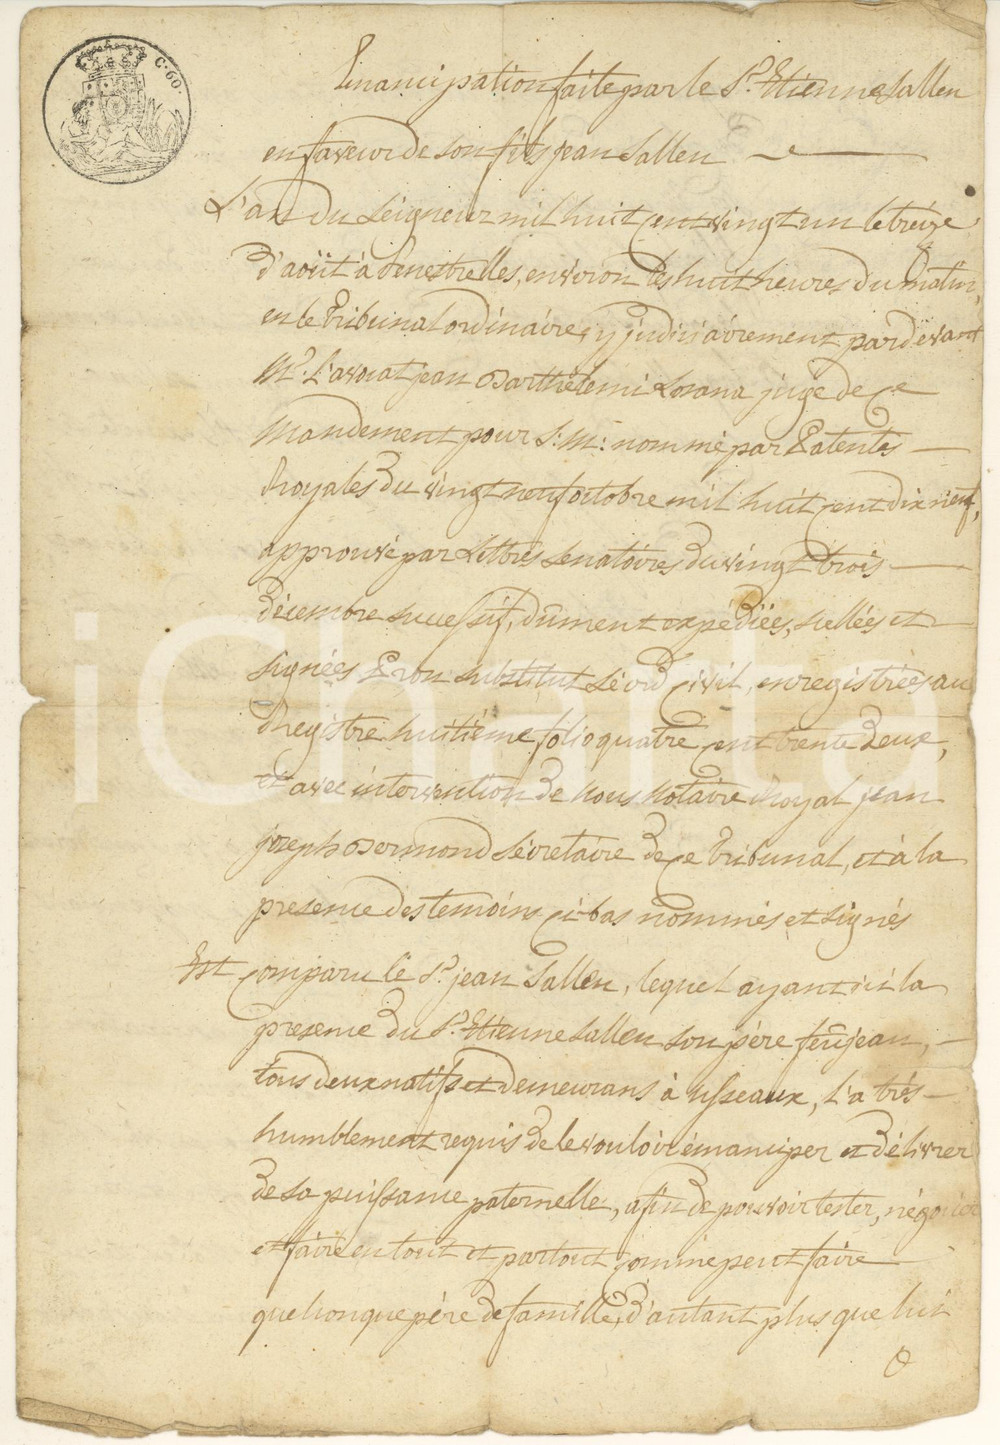 C. 60.
Emancipation faite par le Sr. Etienne Sallen
en faveur de son fils jean Sallen
L'an Du Seigneur mil huit cent vingt un le treize
d'août à fenestrelles, environ les huit heures Du Matin,
en le Tribunal ordinaire, y judiciairement pardevant
Mr. L'avocat jean Barthelemi Losana juge de ce
Mandement pour S: M: nommé par Patentes
Royales Du vingt neuf octobre mil huit cent dix neuf,
approuvé par Lettres Senatoires Du vingt trois
décembre successif, Dûment expédiées, scellées et
signées substitut civil, enregistrées au
Registre huitième folio quatre cent trente Deux,
et avec intervention De Nous Notaire Royal jean
joseph Bermond Sécretaire De ce Tribunal, et à la
presence des temoins ci-bas nommés et signés
Est comparu le Sr. jean Sallen, lequel ayant ici la
presence Du Sr. Etienne Sallen son père feu jean,
tous Deux natifs et Demeurans à Usseaux, L'a très
humblement requis De le vouloir émanciper et Délivrer
De sa puissance paternelle, afin De pouvoir tester, négocier
et faire en tout et partout comme peut faire
quelconque père De famille, D'autant plus que lui
iCharta